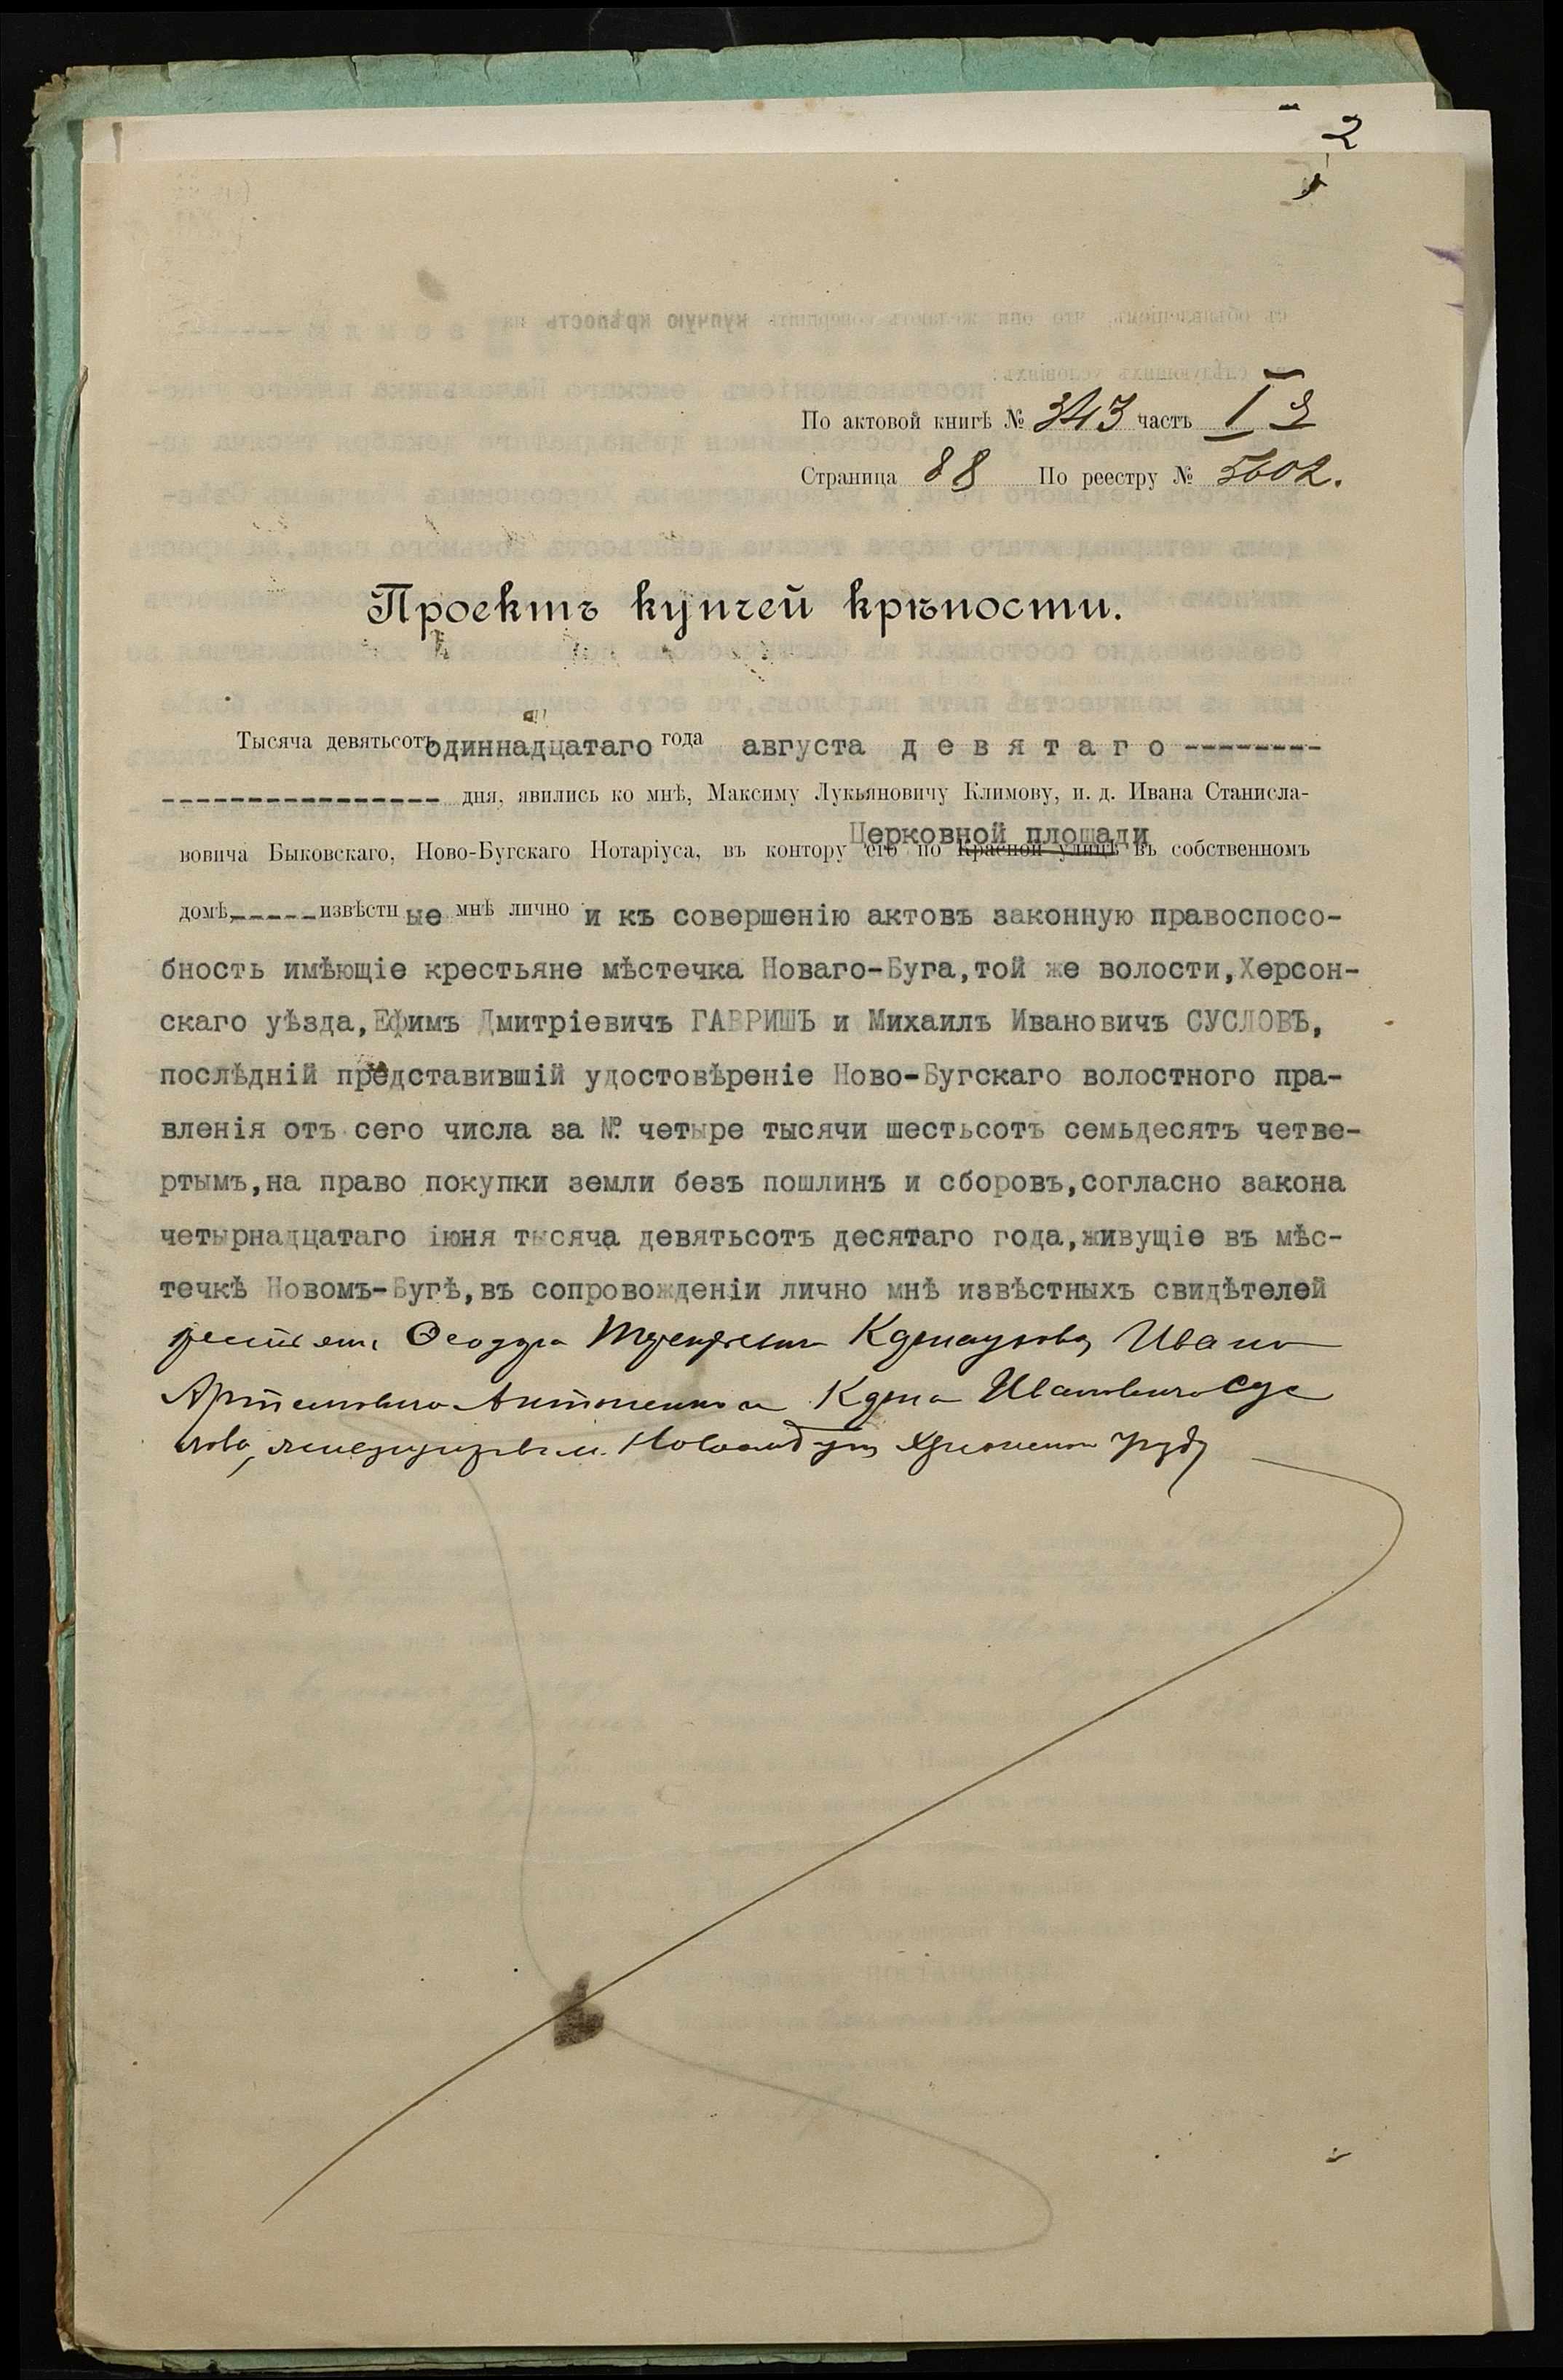 2
По актовой книгѣ № 343 часть I
Страница 88 По реестру № 5602.
Проектъ купчей крѣпости.
Тысяча девятьсотъ одиннадцатаго года августа д е в я т а г о --------
----------------- дня, явились ко мнѣ, Максиму Лукьяновичу Климову, и. д. Ивана Станисла-
Церковной площади
вовича Быковскаго, Ново-Бугскаго Нотаріуса, въ контору его по Красной улицѣ въ собственномъ
домѣ,-----извѣстные мнѣ лично и къ совершенію актовъ законную правоспосо-
бность имѣющіе крестьяне мѣстечка Новаго-Буга,той же волости,Херсон-
скаго уѣзда,Ефимъ Дмитріевичъ ГАВРИШЪ и Михаилъ Ивановичъ СУСЛОВЪ,
послѣдній представившій удостовѣреніе Ново-Бугскаго волостного пра-
вленія отъ сего числа за №. четыре тысячи шестьсотъ семьдесятъ четве-
ртымъ,на право покупки земли безъ пошлинъ и сборовъ,согласно закона
четырнадцатаго іюня тысяча девятьсотъ десятаго года,живущіе въ мѣс-
течкѣ Новомъ-Бугѣ,въ сопровожденіи лично мнѣ извѣстныхъ свидѣтелей
Ѳеодора Ивана
Артемовича Антоненко и Ивановича Сус
лова,